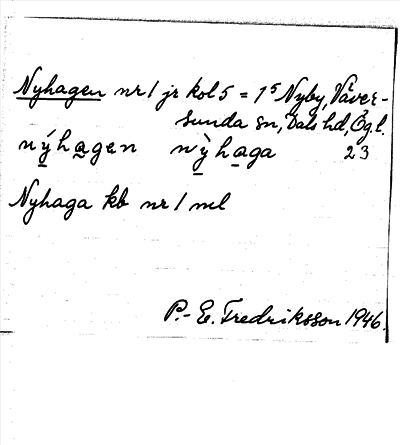 Nyhagen nr 1 jr kol 5 = 1⁵ Nyby, Väver-
sunda sn, Dals hd, Ög.l.
nýhagen nỳhaga 23
Nyhaga kb nr 1 ml
P.-E. Fredriksson 1946.